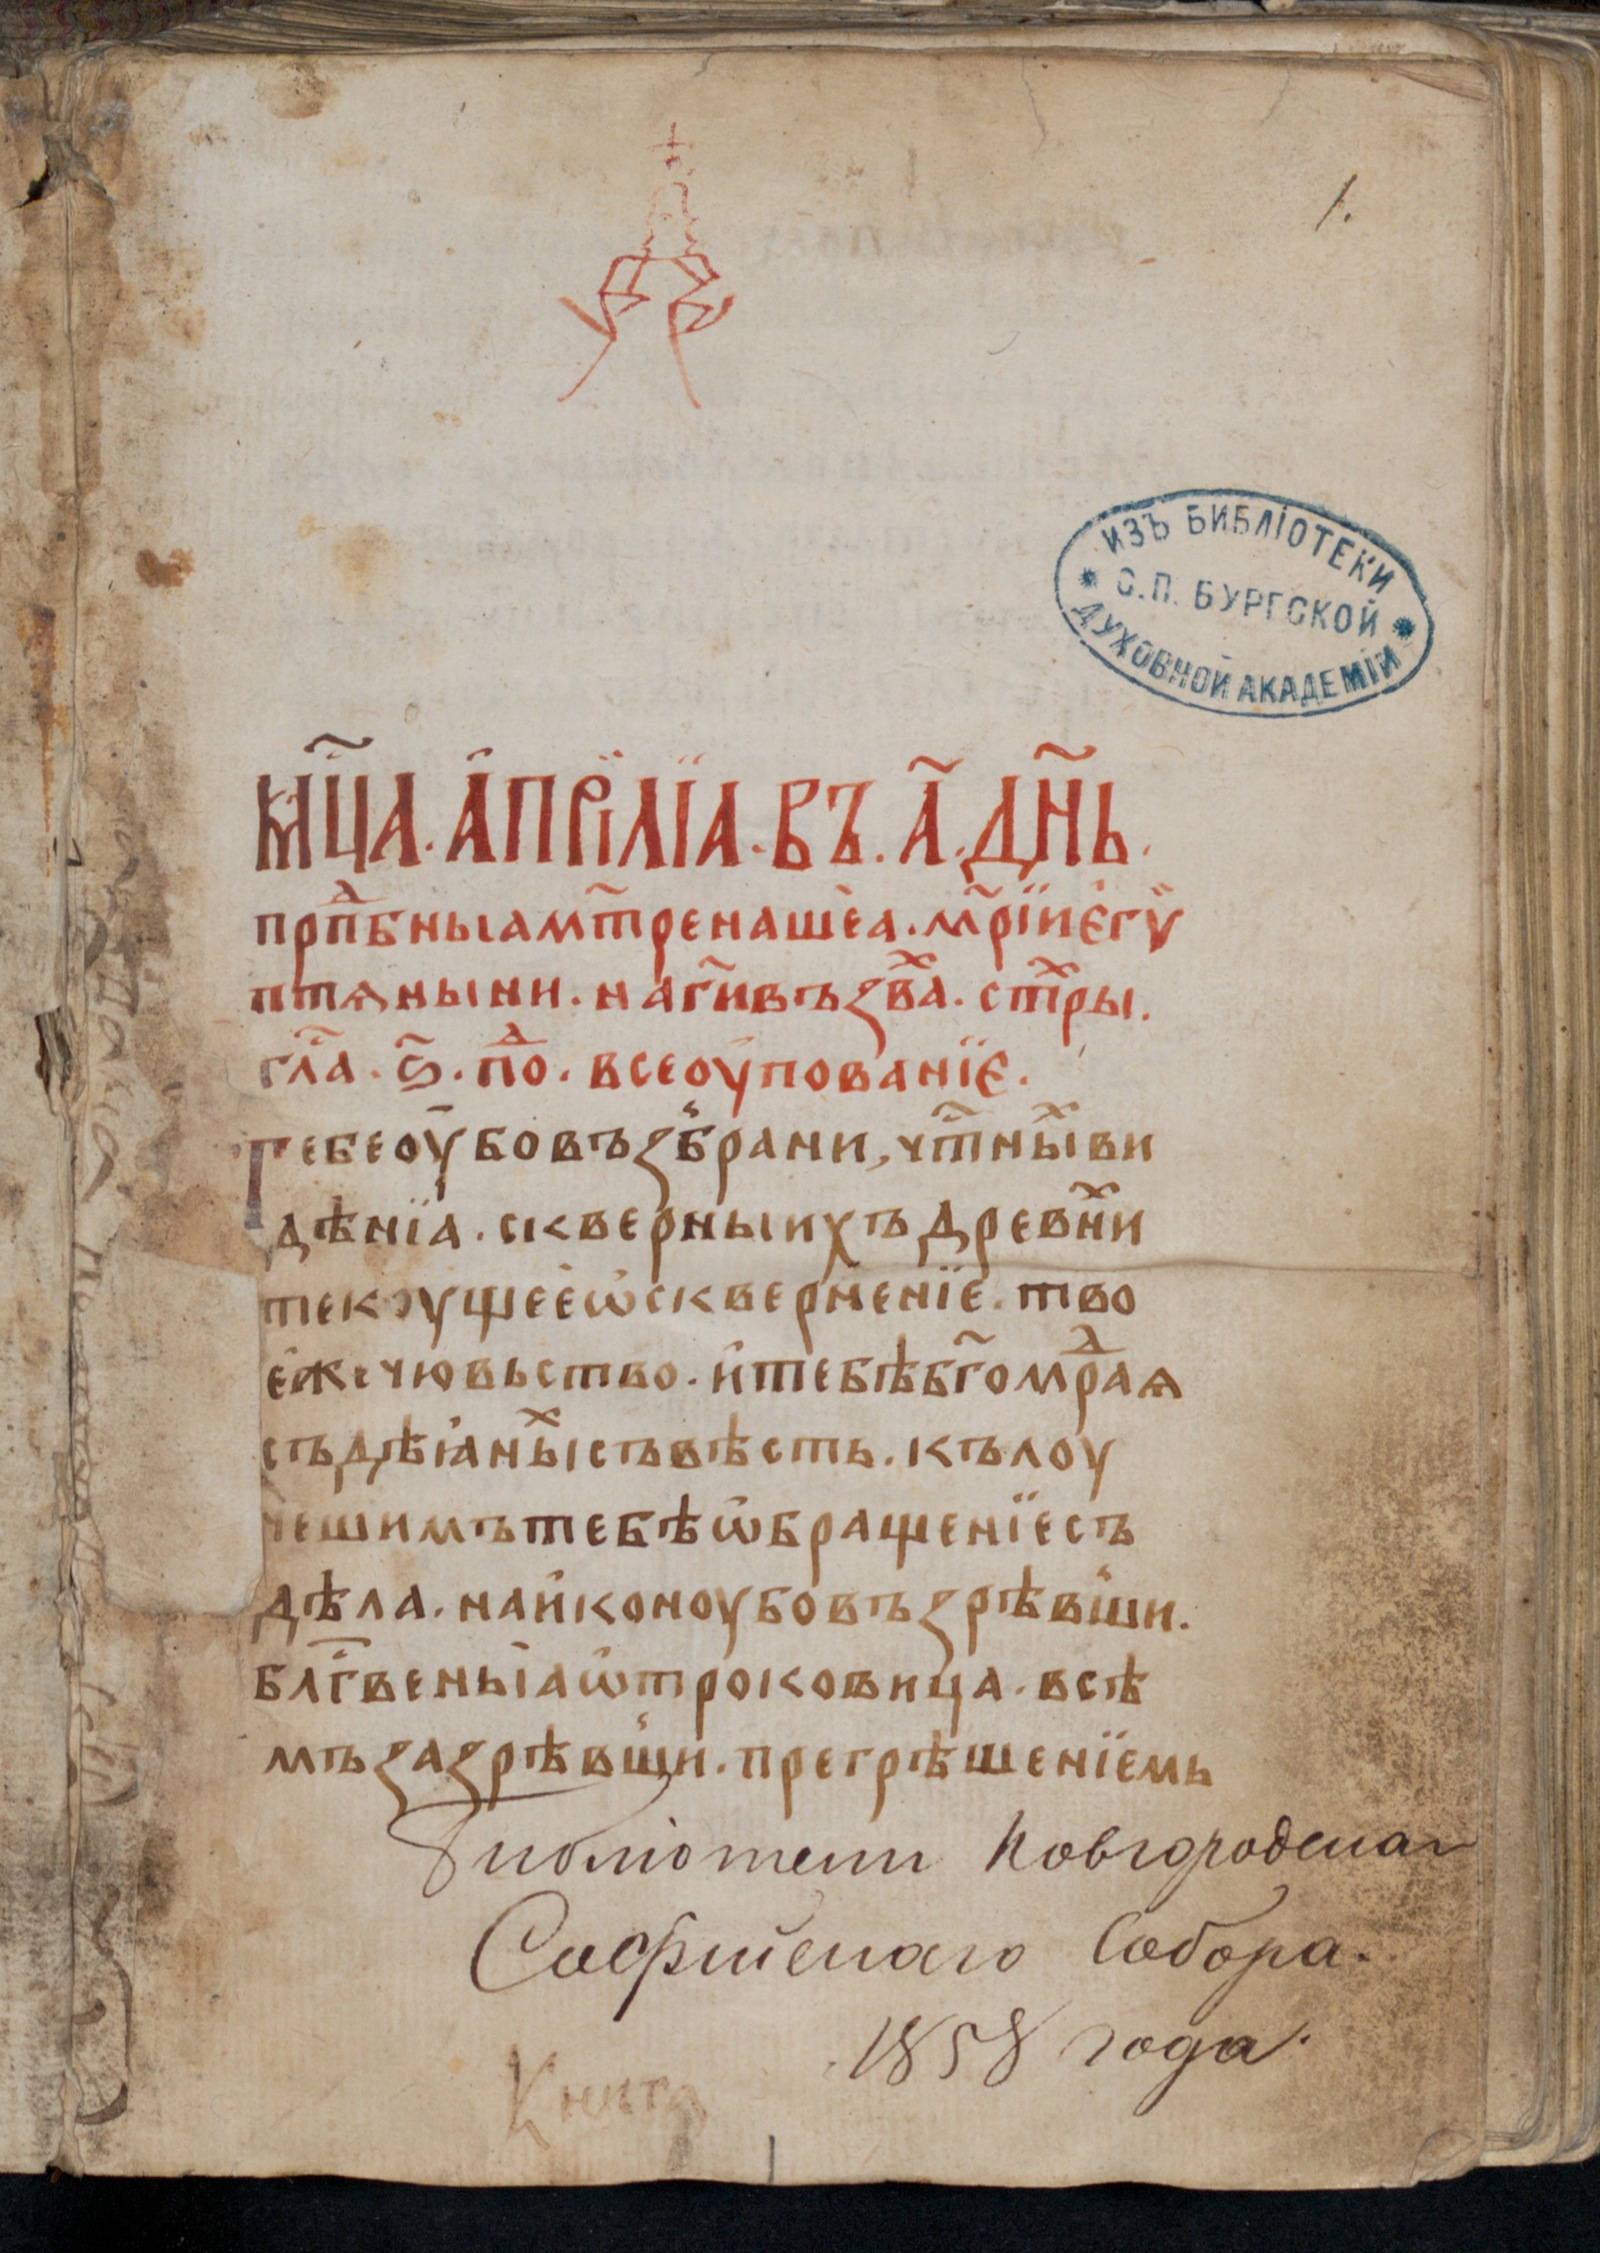 1.
ИЗЪ БИБЛІОТЕКИ
С.П. БУРГСКОЙ
ДУХОВНОЙ АКАДЕМІИ
М҃ЦА. А҆ПРІ́ЛЇА. ВЪ. А҃. ДН҃Ь.
прпⷣбныіам҃тренашеа. мр҃їиег꙼у
птѧныни. наг҃ивъꙁв҃аⷯ. ст҃рыⷯ.
гл҃а. ѕ҃. поⷣ. всеоупованїе.
Тебеоубовъꙁбрани, чт҃ныⷯви
дѣнїа. скверныихъдревниⷯ
текоущееѡскверненїе. тво
ежечювьство. итебѣбг҃омрⷣаꙗ
съдѣіаныⷯсъвѣсть. кълоу
чешимътебѣѡбращенїесъ
дѣла. наиконоубовъꙁрѣвши.
блг҃веныіаѡтроковица. всѣ
мъꙁаꙁрѣвши. прегрѣшенїемь
Библіотеки Новгородскаг
Софійскаго Собора.
1858 года.
Книга